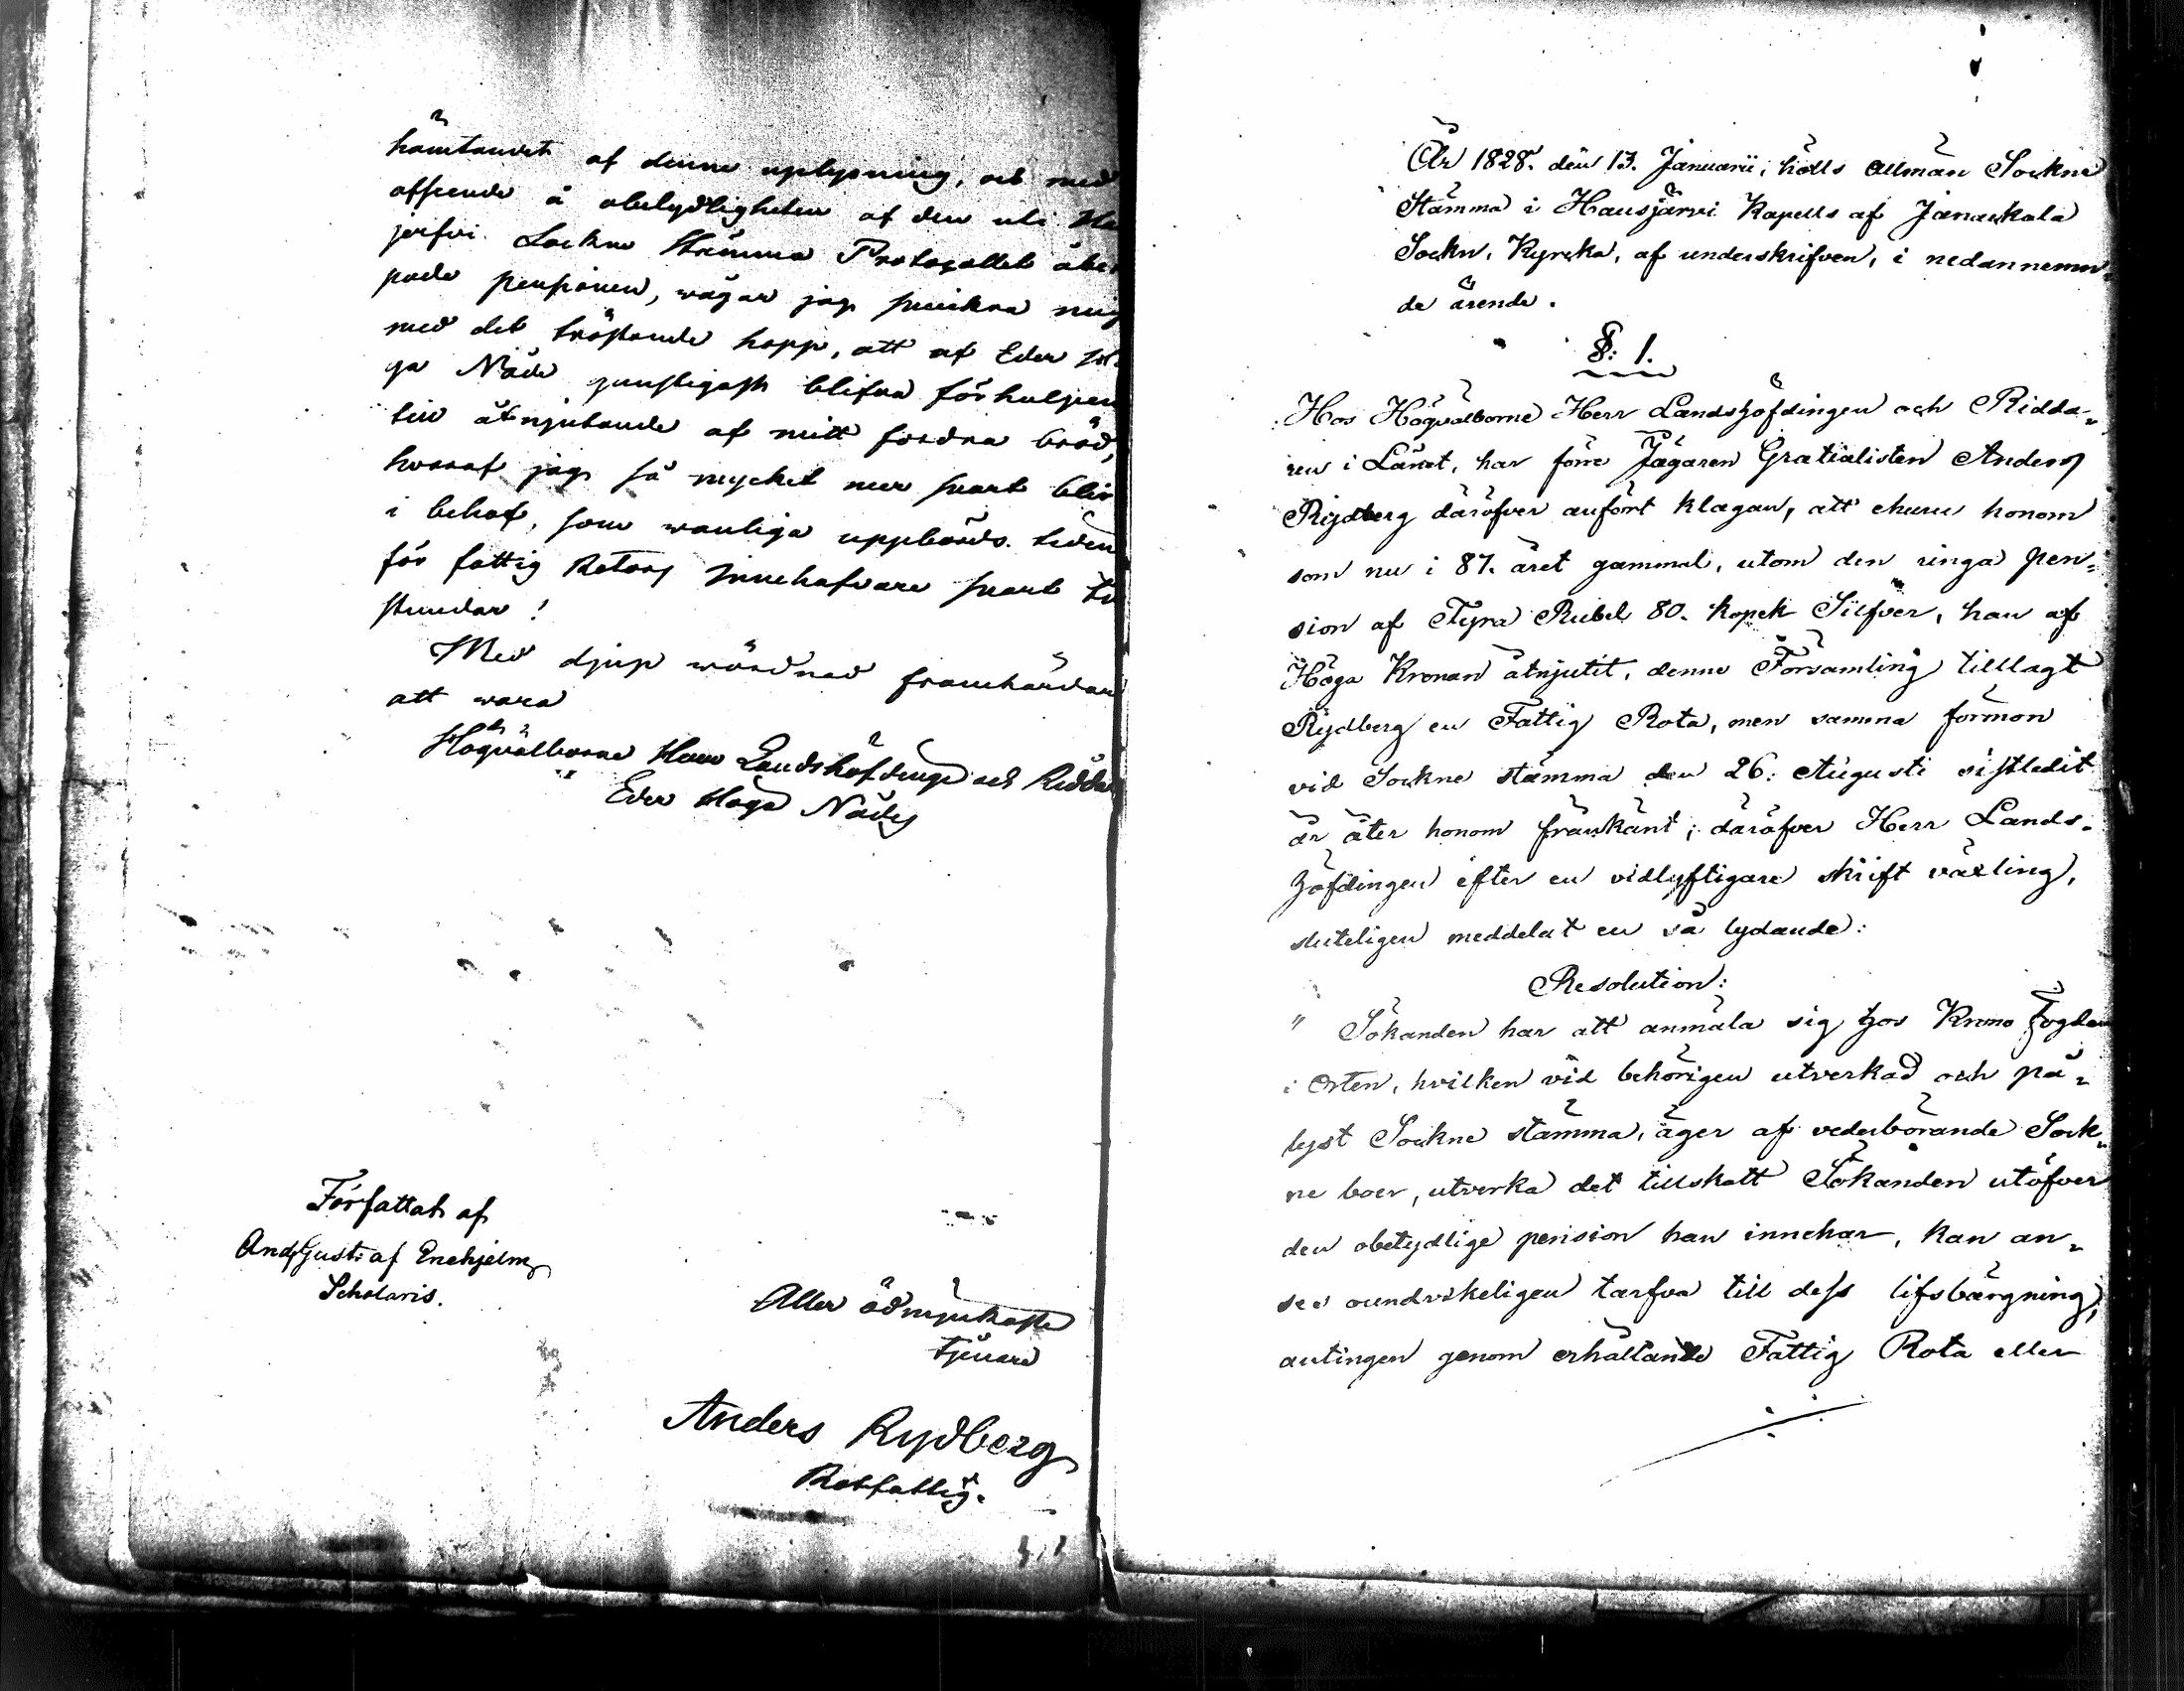 hämtandet af denna uplysning, och med
afseende å obetydligheten af den uti Ha
jerfvi Sockne Stämma Protocollet åbe
pade pensionen, wågar jag smickra mig
med det tröstande hopp, att af Eder Hö
ga Nåde gunstigast blifva förhulpen
till åtnjutande af mitt fordna bröd,
hvaraf jag så mycket mer snart blir
i behof, som wanliga uppbörds tiden
för fattig Rotars innehafvare snart til
stundar!
Med djup wördnad framhärdar
att wara
Högvälborne Herr Landshöfdinge och Ridda
Eder Höga Nådes
Författat af
And Gust: af Enehjelm
Scholaris.
Aller ödmjukaste
tjenare
Anders Rydberg
Rotfattig.
År 1828. den 13. Januarii, hölls allmän Sockne
Stämma i Hausjärvi Kapells af Janakkala
Sockn, Kyrcka, af underskrifven, i nedannemn=
de ärende.
§: 1.
Hos Högvälborne Herr Landshöfdingen och Ridda=
ren i Länet, har förre Jägaren Gratialisten Anders
Rydberg däröfver anfört klagan, att ehuru honom
som nu i 87. året gammal, utom den ringa pen=
sion af Fyra Rubel 80. kopek Silfver, han af
Höga Kronan åtnjutit, denne Församling tillagt
Rydberg en Fattig Rota, men samma förmon
vid Sockne stämma den 26: Augusti sistledit
år åter honom fränkänt; däröfver Herr Lands=
höfdingen efter en vidlyftigare skrift växling,
sluteligen meddelat en så lydande:
Resolution:
" Sökanden har att anmäla sig hos Krono Fogden
i Orten, hvilken vid behörigen utverkad och på=
lyst Sockne stämma, äger af vederbörande Sock=
ne boer, utverka det tillskott Sökanden utöfver
den obetydlige pension han innehar, kan an=
ses oundvikeligen tarfva till dess lifsbärgning,
antingen genom erhållande Fattig Rota eller